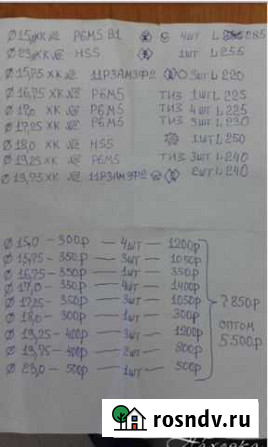 Ø15,0 ХК №2 Р6М5 В1 4шт L 285
Ø23 ХК №2 HSS 1шт L 255
Ø15,75 ХК №2 11Р3АМ3Ф2 3шт L 220
Ø16,75 ХК №2 Р6М5 ТИЗ 1шт L 225
Ø17,0 ХК №2 Р6М5 ТИЗ 4шт L 225
Ø17,25 ХК №2 Р6М5 ТИЗ 3шт L 230
Ø18,0 ХК №2 HSS 1шт L 250
Ø19,25 ХК №2 Р6М5 ТИЗ 3шт L 240
Ø19,75 ХК №2 11Р3АМ3Ф2 2шт L 240
Ø15,0 – 300р — 4шт — 1200р
Ø15,75 – 350р — 3шт — 1050р
Ø16,75 – 350р — 1шт — 350р
Ø17,0 – 350р — 4шт — 1400р
Ø17,25 – 350р — 3шт — 1050р
Ø18,0 – 300р — 1шт — 300р
Ø19,25 – 400р — 3шт — 1200р
Ø19,75 – 400р — 2шт — 800р
Ø23,0 – 500р — 1шт — 500р
7850р
ОПТОМ
5500р
Находка
rosndv.ru